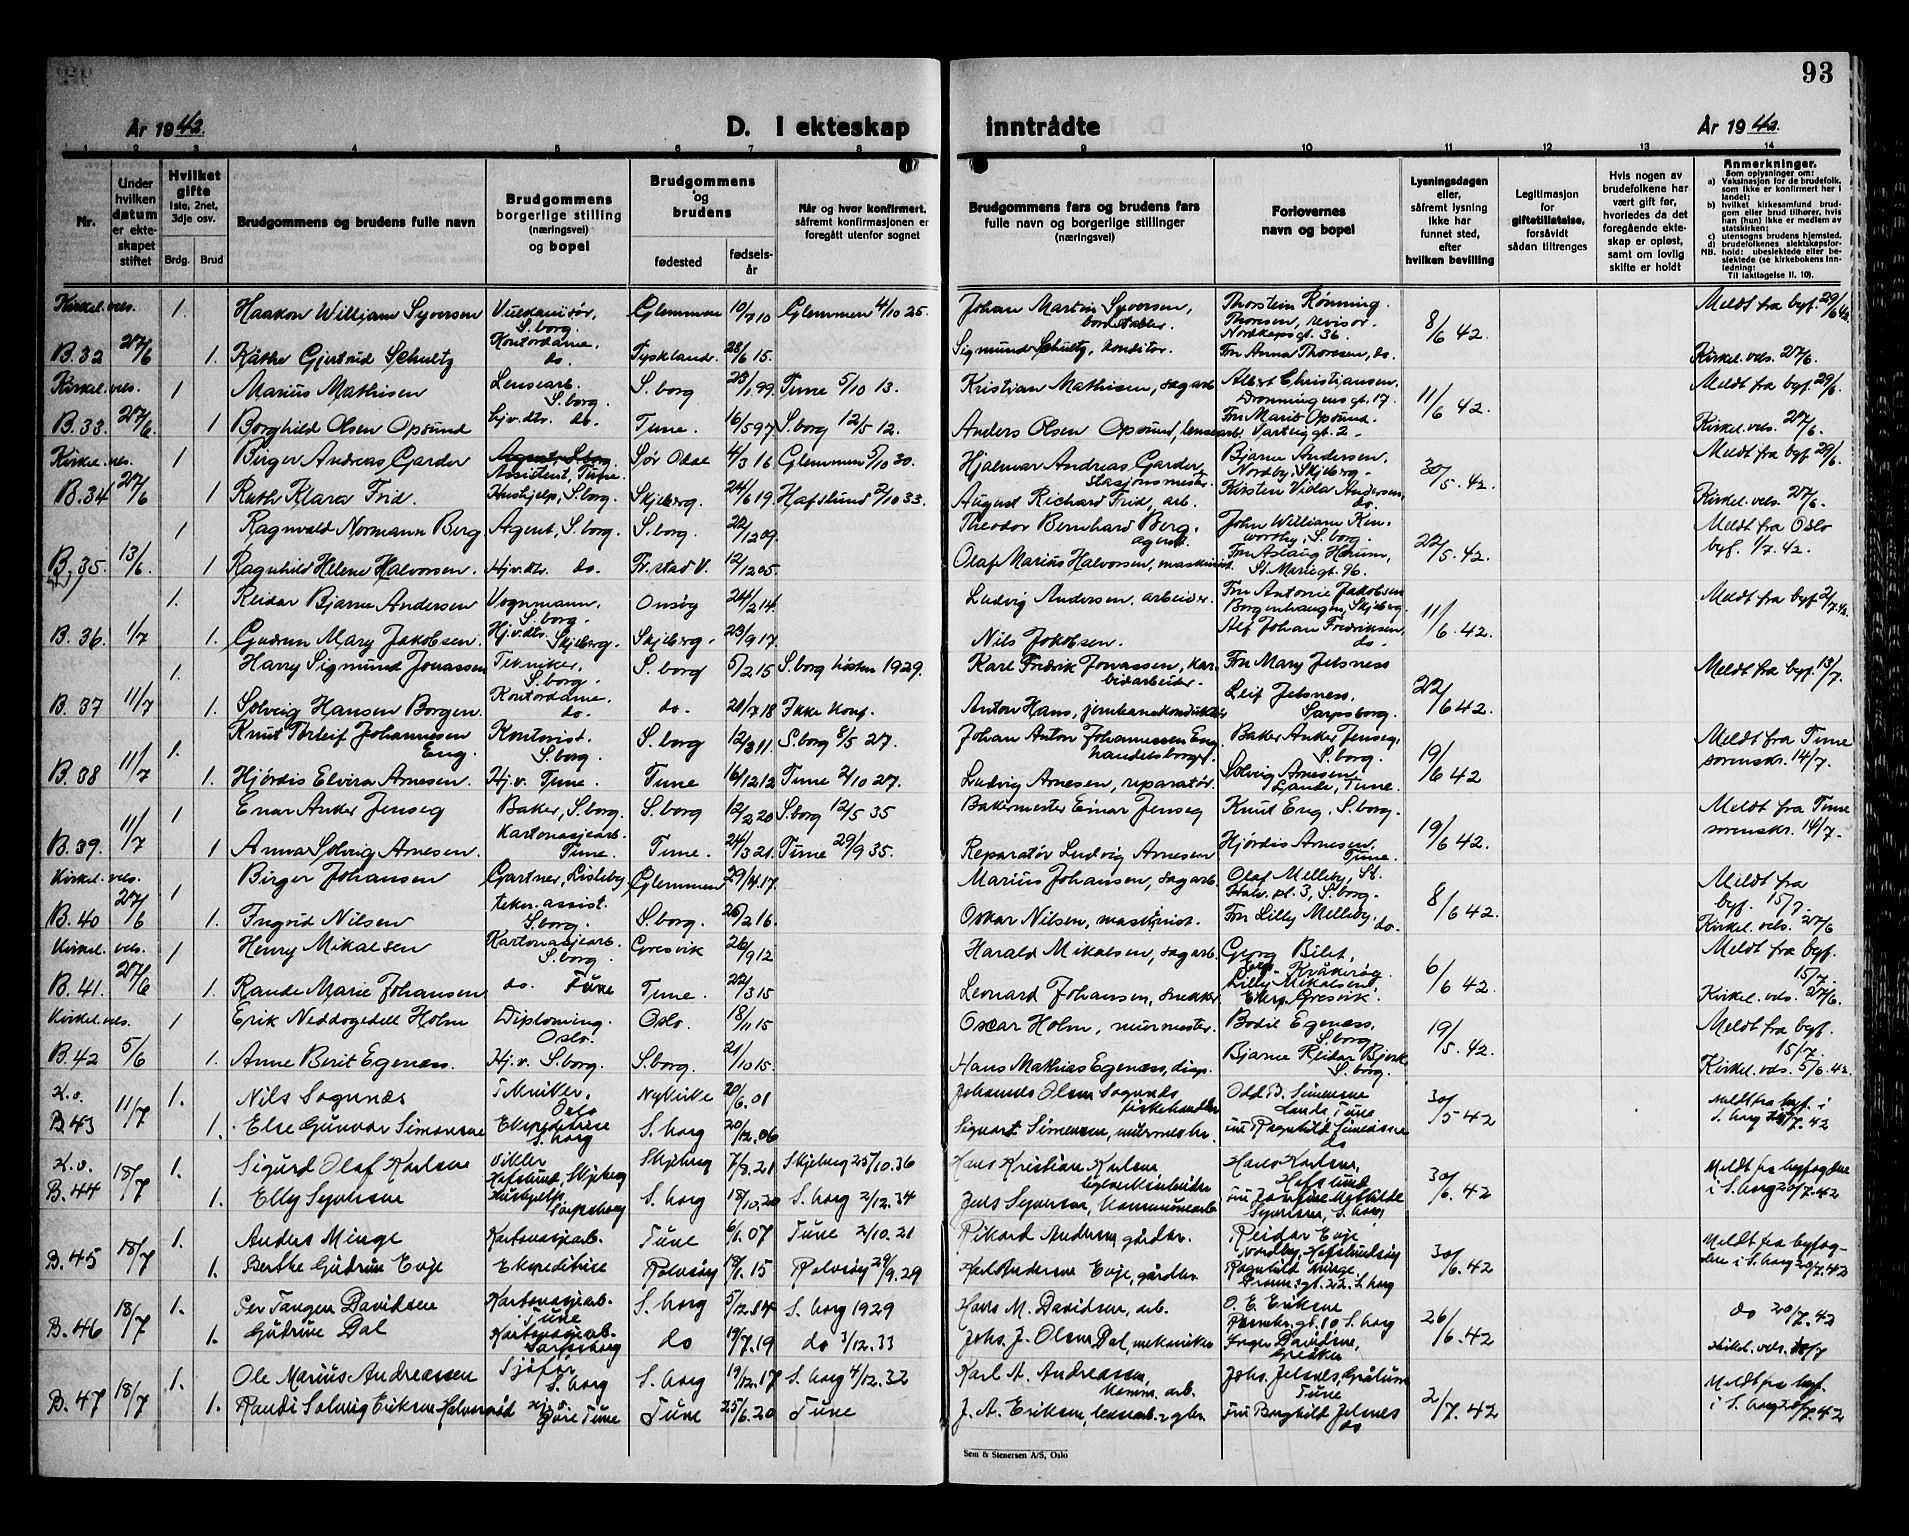 93
År 1942.
D. I ekteskap
inntrådte
År 1942.
1 2 3 4 5 6 7 8 9 10 11 12 13 14
Nr.
Under hvilken datum er ekteskapet stiftet
Hvilket gifte
1ste, 2net, 3dje osv.
Brdg. Brud
Brudgommens og brudens fulle navn
Brudgommens borgerlige stilling (næringsvei) og bopel
Brudgommens og brudens
fødested
fødselsår
Når og hvor konfirmert, såfremt konfirmasjonen er foregått utenfor sognet
Brudgommens fars og brudens fars fulle navn og borgerlige stillinger (næringsvei)
Forlovernes navn og bopel
Lysningsdagen eller, såfremt lysning ikke har funnet sted, efter hvilken bevilling
Legitimasjon for giftetillatelse, forsåvidt sådan tiltrenges
Hvis nogen av brudefolkene har vært gift før, hvorledes da det foregående ekteskap er opløst, samt om lovlig skifte er holdt
Anmerkninger.
Som oplysning om:
a) Vaksinasjon for de brudefolk, som ikke er konfirmert her i landet;
b) hvilket kirkesamfund brudgom eller brud tilhører, hvis han (hun) ikke er medlem av statskirken;
c) utensogns brudens hjemsted.
d) brudefolkenes slektskapsforhold: ubeslektede eller beslektede (se kirkebokens innledning:
NB. Til iakttagelse II. 10).
Kirkel. vels. 1. Haakon William Syversen Vulkanisør, S.borg. Glemmen 10/7 10 Glemmen 4/10 25. Johan Martin Syversen, Thorstein Rønning Thoresen, revisor. Nordkapsgt. 36. 8/6 42. Meldt fra byf. 29/6 42
B. 32 27/6 1. Käthe Gjertrud Schultz Kontordame. do. Tyskland. 28/6 15. Sigmund Schultz, konditor. Fru Anna Thoresen, do. Kirkel. vels. 27/6.
Kirkel. vels. 1 Marius Mathisen Lensearb. S.borg. S.borg 23/1 99. Tune 5/10 13. Kristian Mathisen, sagarb. Albert Christjansen. Dronningensgt. 17. 11/6 42. Meldt fra byf. 29/6.
B. 33. 27/6. 1 Borghild Olsen Opsund Hj.v.dtr. do. Tune. 16/5 97 S.borg 12/5 12. Anders Olsen Opsund, lensearb. Fru Marit Opsund. Varteiggt. 2. Kirkel. vels. 27/6.
Kirkel. vels. 1 Birger Andreas Garder Assistent, Tune. Sør Odal 4/3 16 Glemmen 5/10 30. Hjalmar Andreas Garder, Stasjonsmester. Bjarne Andersen. Nordby, Skjeberg. 30/5. 42. Meldt fra byf. 29/6.
B. 34 27/6 1 Ruth Klara Frid. Hushjelp, S.borg. Skjeberg. 24/6 19. Hafslund 2/10 33. August Richard Frid, arb. Kirsten Vida Andersen, do. Kirkel. vels. 27/6.
1 Ragnvald Normann Berg. Agent, S.borg. S.borg. 22/12 09. Theodor Bernhard Berg, agent. John William Kenworthy, S.borg. 22/5. 42. Meldt fra Oslo byf. 1/7. 42.
B. 35. 13/6. 1 Ragnhild Helene Halvorsen. Hj.v.dtr. do. Fr.stad V. 12/12 05. Olaf Marius Halvorsen, maskinist. Fru Aslaug Herum, St. Mariegt. 96.
1. Reidar Bjarne Andersen Vognmann. S.borg. Onsøy 24/2 14. Ludvig Andersen, arbeider. Fru Antonie Jakobsen Borgenhaugen, Skjeberg. 11/6. 42. Meldt fra byf. 2/7. 42.
B. 36. 1/7 1. Gudrun Mary Jakobsen. Hj.v.dtr. Skjeberg. Skjeberg. 23/9 17. Nils Jakobsen. Alf Johan Fredriksen, do.
1. Harry Sigmund Jonassen Tekniker. S.borg. S.borg 5/2 15 S.borg høsten 1929. Karl Fredrik Jonassen, karbidarbeider. Fru Mary Jelsness 22/6 42. Meldt fra byf. 13/7.
B. 37 11/7 1. Solveig Hansen Borgen. Kontordame. do. do. 21/7 18 Ikke konf. Anton Hans, jernbanekonduktør Leif Jelsness, Sarpsborg.
1. Knut Torleif Johannesen Eng. Kontorist. S.borg. S.borg 12/3 11. S.borg 8/5 27. Johan Anton Johannessen Eng, handelsborger. Baker Anker Jenseg, S.borg. 19/6 42 Meldt fra Tune sorenskr. 14/7.
B. 38 11/7 1. Hjørdis Elvira Arnesen. Hj.v. Tune. Tune 16/12 12 Tune 2/10 27. Ludvig Arnesen, reparatør. Solveig Arnesen, Lande, Tune.
1 Enar Anker Jenseg Baker, S.borg. S.borg 12/2 20 S.borg 12/5 35 Bakermester Einar Jenseg Knut Eng, S.borg. 19/6 42. Meldt fra Tune sorenskr. 14/7.
B. 39. 11/7 1 Anna Solveig Arnesen. Kartonasjearb. Tune. Tune. 24/3 21. Tune 29/9 35. Reparatør Ludvig Arnesen Hjördis Arnesen, Tune.
Kirkel. vels. 1 Birger Johansen Gartner, Lisleby Glemmen 29/4 17. Marius Johansen, sagarb. Olaf Melleby, St. Halv. pl. 3, S.borg. 8/6 42. Meldt fra byf. 15/7.
B. 40 27/6 1. Ingrid Nilsen assist. S.borg. S.borg. 26/2 16. Oskar Nilsen, maskinist. Fru Lilly Melleby, do. Kirkel. vels. 27/6
Kirkel. vels. 1 Henry Mikalsen Kartonasjearb. S.borg. Gresvik 26/9 12 Harald Mikalsen, sagarb. Georg Bilet, Kråkerøy. 6/6 42. Meldt fra byf. 15/7.
B. 41. 27/6 1. Rande Marie Johansen do. Tune Tune. 22/3 15 Leonard Johansen, snekker Lilly Mikalsen, Gresvik. Kirkel. vels. 27/6.
Kirkel. vels. 1 Erik Neddogedell Holm Diploming. Oslo. Oslo. 18/11 15 Oscar Holm, murmester. Bodil Egenæss, S.borg 19/5. 42. Meldt fra byf. 15/7.
B. 42 5/6 1. Anne Berit Egenæss. Hj.v. S.borg. S.borg. 21/10 15 Hans Mathias Egenæss, disp. Bjarne Reidar Bjerk S.borg. Kirkel. vels. 5/6. 42.
K.v. 1. Nils Sogunæs Oslo 20/6. 01 fiskehandler Odd B. Simensen Lande Tune 30/5 42 Meldt fra byf. i S.borg 20/7. 42
B. 43 11/7 1. Else Gunvor Simensen Ekspeditrise S.borg S.borg 20/12. 06 Sigvart Simensen, murmester. fru Ragnhild Simensen do
K.v. 1. Sigurd Olaf Karlsen Vikler Hafslund, Skjeberg Skjeberg 7/8. 21 Skjeberg 25/10. 36 Hans Kristian Karlsen Hans Karlsen, Hafslund 30/6. 42 Meldt fra byfogden i S.borg 20/7. 42
B. 44 18/7 1. Elly Syversen Hushjelp Sarpsborg S.borg 18/10. 20 S.borg 2/12. 34 Jens Syversen, kommunearb fru Josefine Mathilde Syversen, S.borg
1. Anders Minge Kartonasjearb. Tune 6/1. 07 Tune 2/10. 21 Rikard Andersen, gårdbr. Reidar Evje Nordby, Hafslundsøy 30/6. 42 Meldt fra byfogden i S.borg 20/7. 42
B. 45 18/7 1. Berthe Gudrun Evje Ekspeditrise Rolvsøy 18/1. 15 Rolvsøy 29/9. 29 Karl Andersen Evje, gårdbr. Ragnhild Minge, S.borg
1. Per Tangen Davidsen Kartonasjearb. Tune S.borg 5/12. 14 S.borg 1929 Hans M. Davidsen, arb. O. E. Eriksen S.borg 26/6. 42 do 20/7. 42
B. 46 18/7 1. Gudrun Dal Kartonasjearb. Sarpsborg do 19/7. 19 do 3/12. 33 Johs. J. Olsen Dal, mekaniker Inger Davidsen, Greåker Kirkel. vels. 18/7
1. Ole Marius Andreassen Sjåfør S.borg S.borg 19/12. 17 S.borg 4/12. 32 Karl A. Andreassen, komm. arb. Johs. Jelsnes, Grålum Tune 2/7. 42 Meldt fra byf. i S.borg 20/7. 42
B. 47 18/7 1. Randi Solveig Eriksen Halvorsrød Hj.v. Tune Tune 25/6. 20 Tune J. A. Eriksen, Fru Borghild Jelsnes do
Sem & Stenersen A/S, Oslo